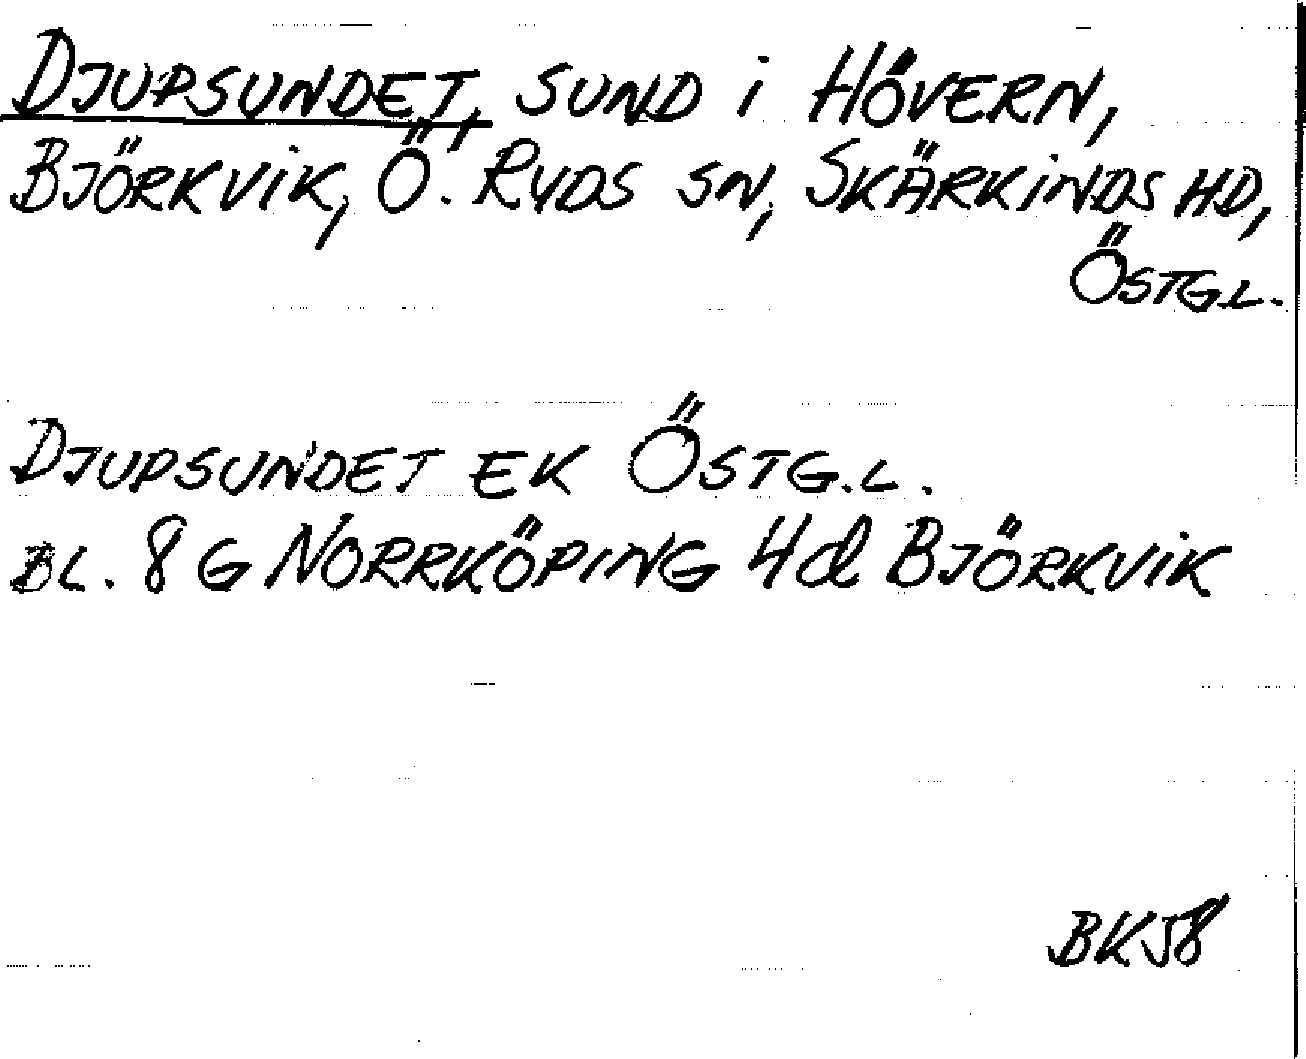 DJUPSUNDET, SUND i HÖVERN,
BJÖRKVIK, Ö. RYDS SN, SKÄRKINDS HD,
ÖSTGL.
DJUPSUNDET EK ÖSTG.L.
BL. 8 G NORRKÖPING 4d BJÖRKVIK
BK58